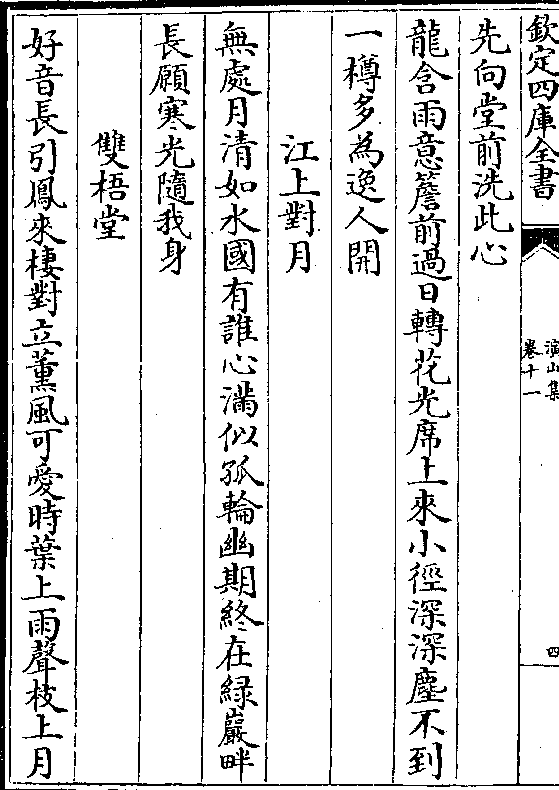 欽定四庫全書
演山集
卷十一
四
先向堂前洗此心
龍含雨意簷前過日轉花光席上來小徑深深塵不到
一樽多為逸人開
江上對月
無處月清如水國有誰心滿似孤輪幽期終在緑巖畔
長願寒光隨我身
雙梧堂
好音長引鳳來棲對立薰風可愛時葉上雨聲枝上月